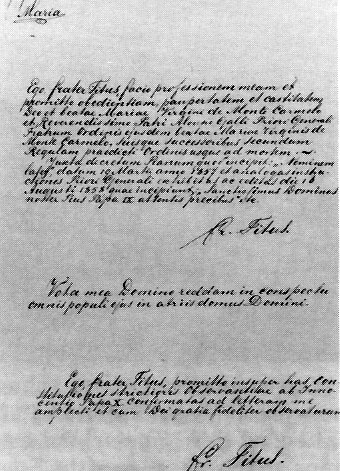 Maria
Ego frater Titus, facio professionem meam et
promitto obedientiam, paupertatem et castitatem
Deo et beatae Mariae Virgine de Monte Carmelo
et Reverendissimo Patri Aloisi Galli Priori Generali
Fratrum Ordinis ejusdem beatae Mariae Virginis de
Monte Carmelo, suisque successoribus secundum
Regulam praedicti Ordinis usque ad mortem.
Juxta decretum quod incipit: "Neminem
latet" datum 19 Martii anni 1857 et analogas instru-
ctiones Priori Generali exhibitas ac editas die 1
Augusti 1858 quae incipiunt, "Sanctissimus Dominus
noster Pius Papa IX attentis precibus" etc.
Fr. Titus.
Vota mea Domino reddam in conspectu
omnis populi ejus in atriis domus Domini.
Ego frater Titus, promitto insuper has con-
stitutiones strictioris Observantiae ab Inno-
centio Papa X confirmatas ad litteram me
amplecti et cum Dei gratia fideliter observaturum
Fr. Titus.